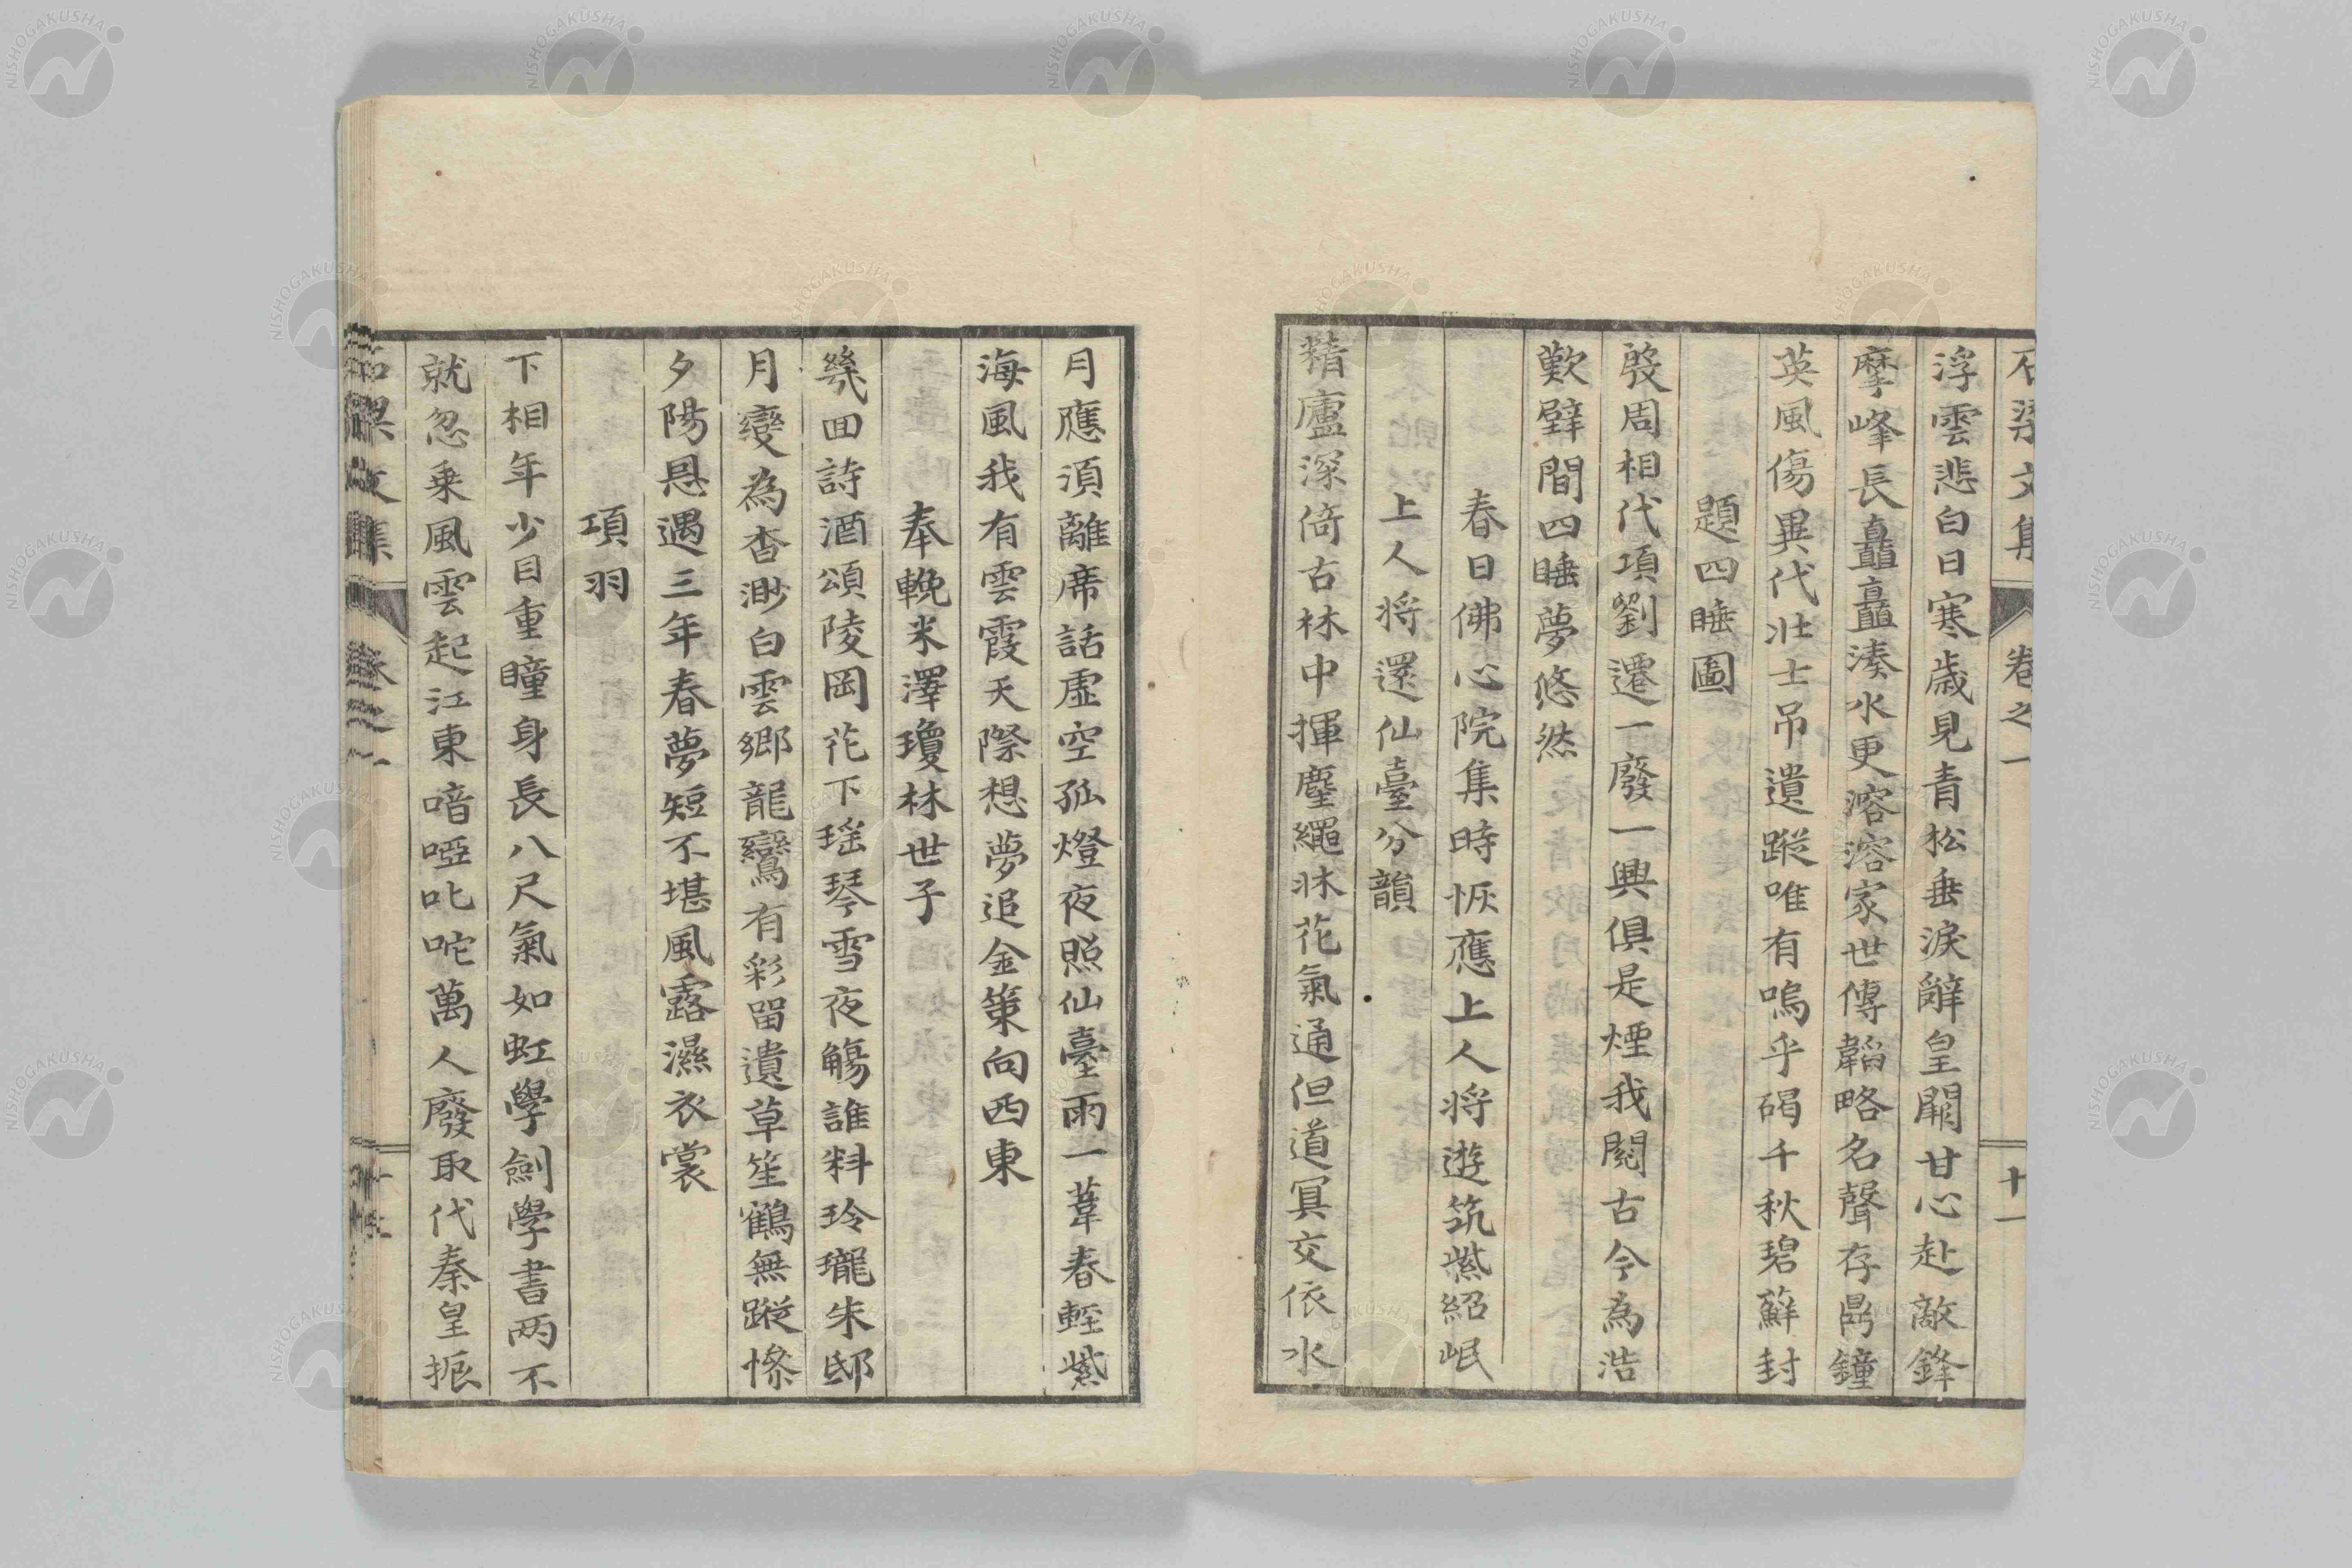 石梁文集 卷之一 十一
浮雲悲白日寒歳見青松垂淚辭皇闕甘心赴敵鋒
摩峰長矗矗湊水更溶溶家世傳韜略名聲存鼎鐘
英風傷異代壮士吊遺蹤唯有嗚乎碣千秋碧蘚封
題四睡圖
殷周相代項劉遷一廢一興倶是煙我閲古今為浩
歎壁間四睡夢悠然
春日佛心院集時恢應上人将遊筑紫紹岷
上人将還仙臺分韻
精廬深倚古林中揮麈繩牀花氣通但道冥交依水
月應須離席話虛空孤燈夜照仙臺雨一葦春輕紫
海風我有雲霞天際想夢追金策向西東
奉輓米澤瓊林世子
幾回詩酒頌陵岡花下瑶琴雪夜觴誰料玲瓏朱邸
月變為杳渺白雲郷龍鸞有彩留遺草笙鶴無蹤慘
夕陽恩遇三年春夢短不堪風露濕衣裳
項羽
下相年少目重瞳身長八尺氣如虹學劍學書两不
就忽乗風雲起江東喑啞叱咤萬人廢取代秦皇振